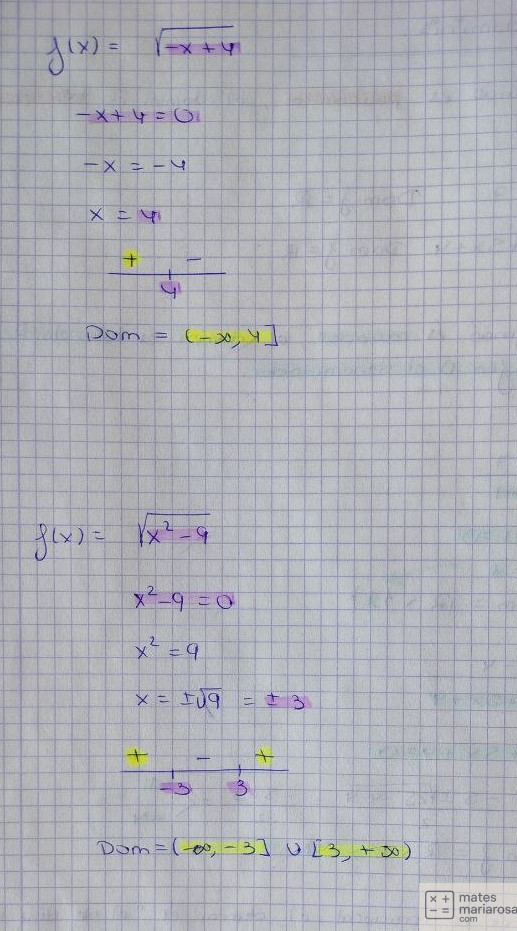 f(x) = √-x+4
-x+4=0
-x = -4
x = 4
+ -
4
Dom = (-∞, 4]
f(x) = √x²-9
x²-9 = 0
x² = 9
x = ±√9 = ±3
+ - +
-3 3
Dom = (-∞, -3] ∪ [3, +∞)
× + mates
- = mariarosa
com